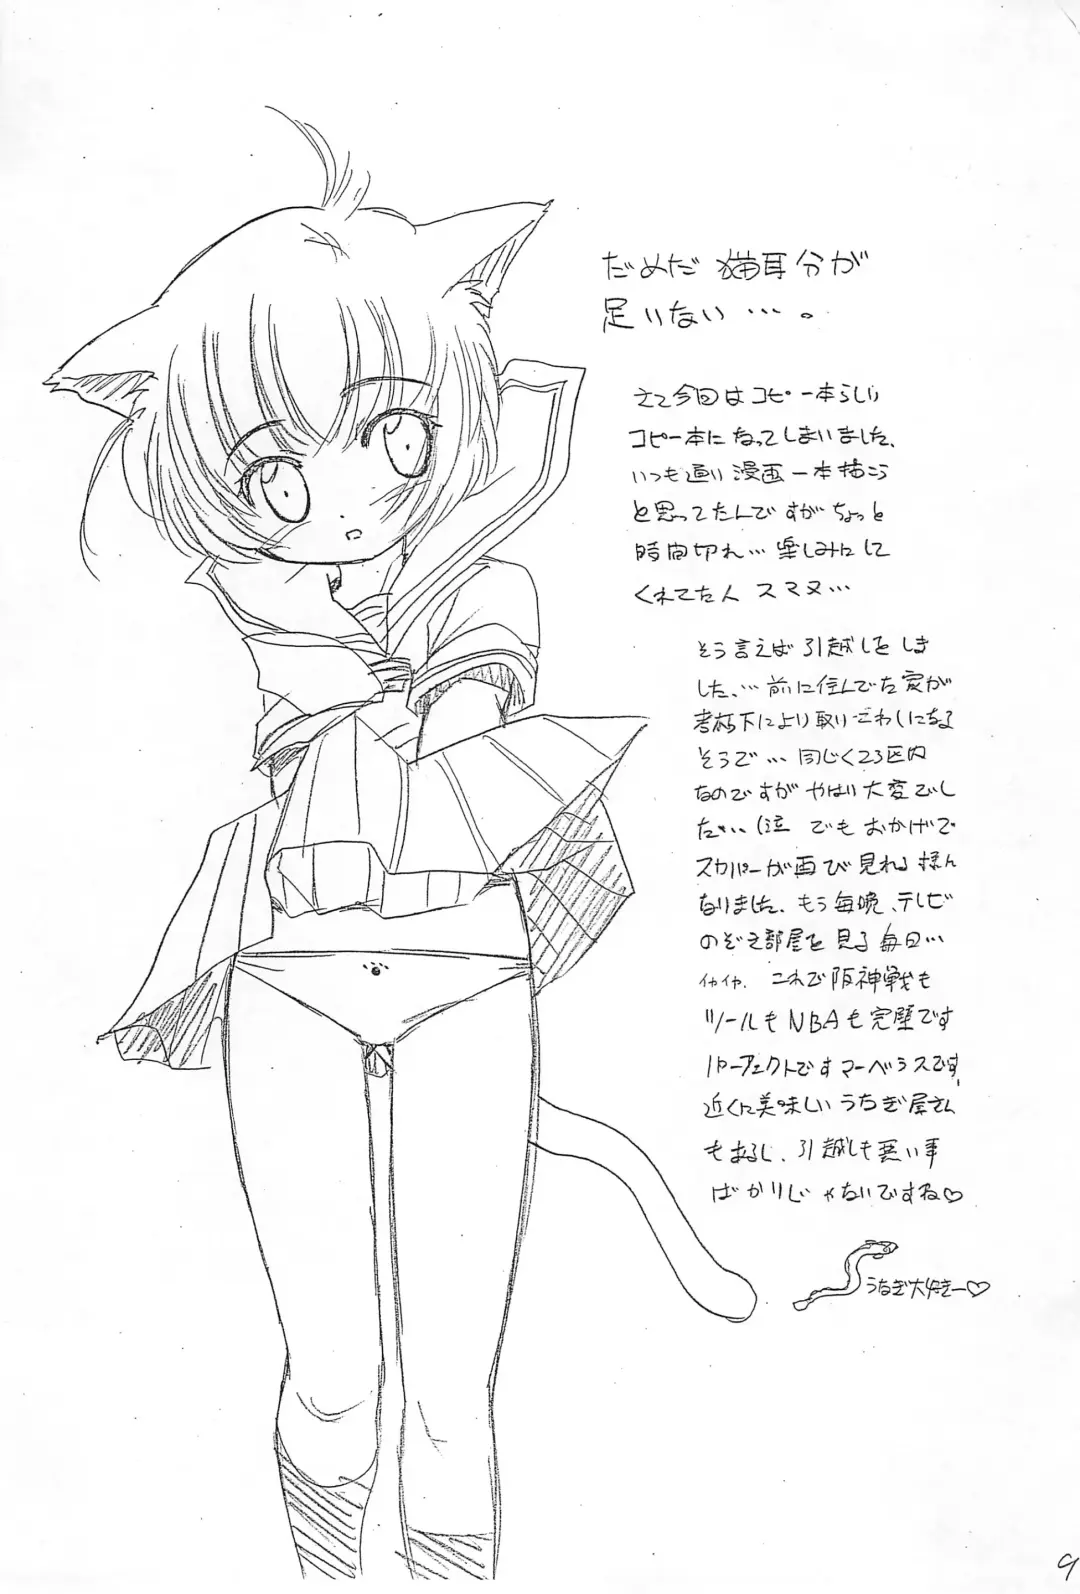 だめだ 猫耳分が
足りない…。
さて今回はコピー本らしい
コピー本になってしまいました、
いつも通り漫画一本描こう
と思ってたんですがちょっと
時間切れ…楽しみにして
くれてた人 スマヌ…
そう言えば引越しをしま
した、…前に住んでた家が
老朽下により取りこわしになる
そうで…同じく23区内
なのですがやはり大変でし
た…(泣 でもおかげで
スカパーが再び見れる様ん
なりました、もう毎晩、テレビ
のぞえ部屋を見る毎日…
イヤイヤ. これで阪神戦も
ツールもNBAも完璧です
パーフェクトですマーベラスです、
近くに美味しいうなぎ屋さん
もあるし、引越しも悪い事
ばかりじゃないですね♡
うなぎ大好きー♡
9